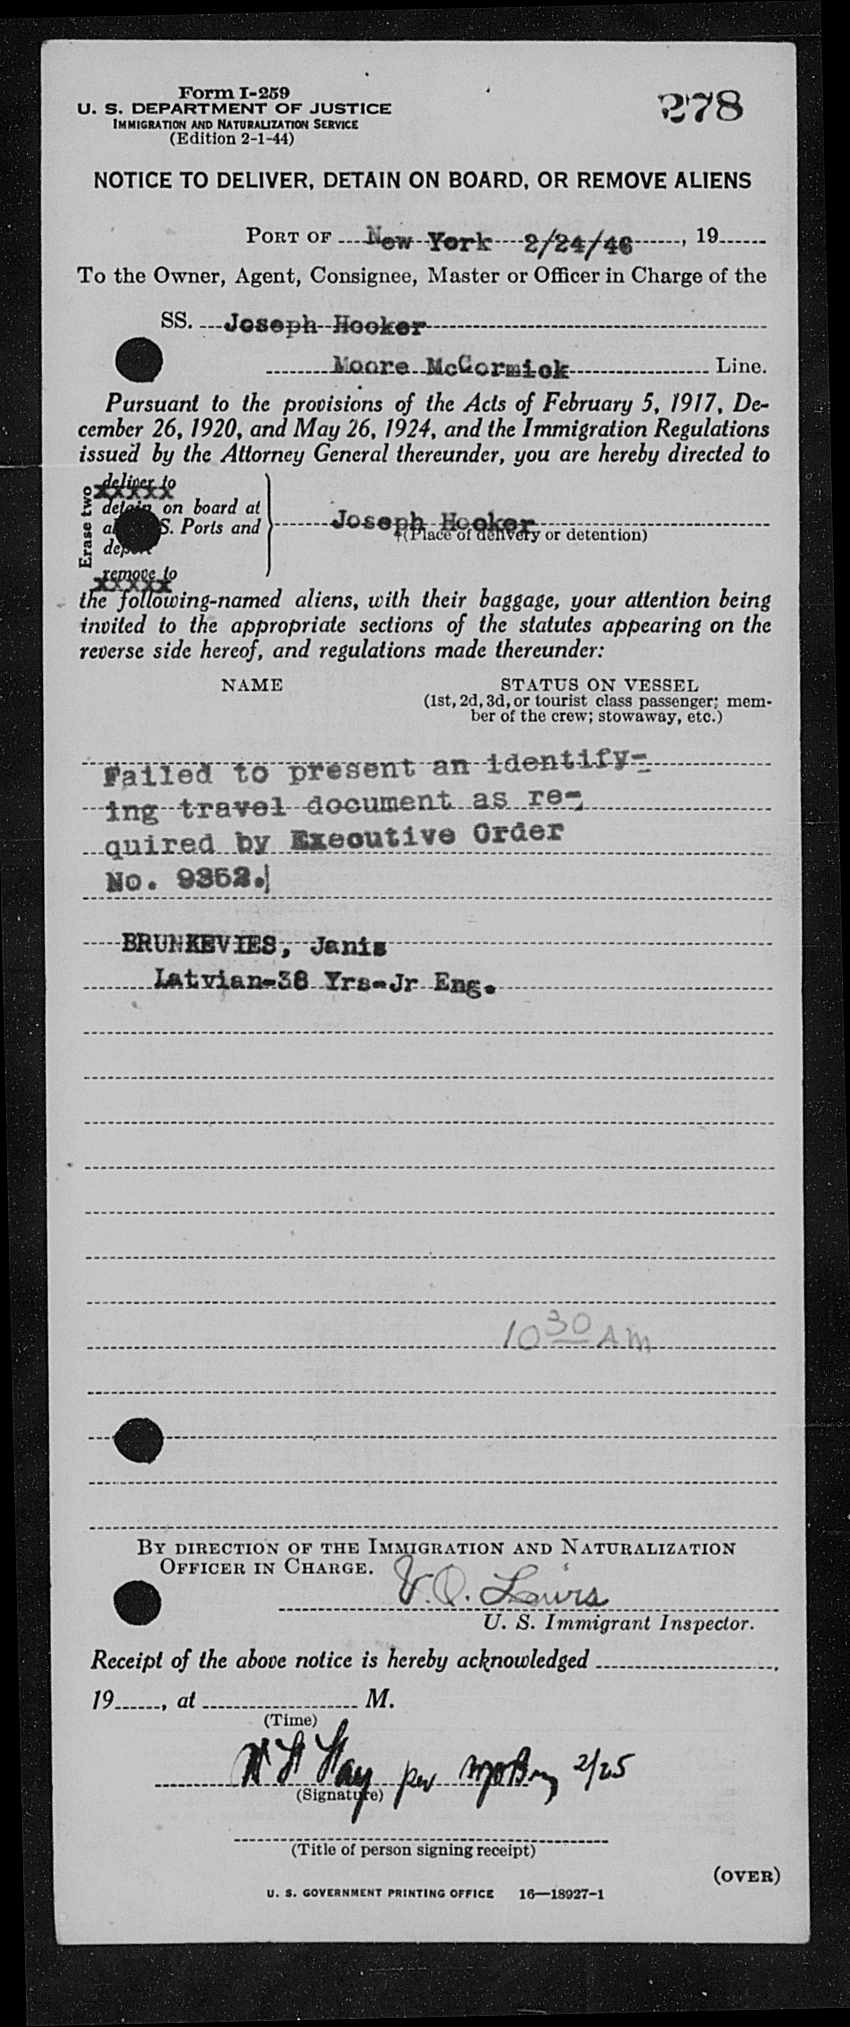 Form I-259
U. S. DEPARTMENT OF JUSTICE
IMMIGRATION AND NATURALIZATION SERVICE
(Edition 2-1-44)
278
NOTICE TO DELIVER, DETAIN ON BOARD, OR REMOVE ALIENS
PORT OF New York 2/24/46, 19
To the Owner, Agent, Consignee, Master or Officer in Charge of the
SS. Joseph Hooker
Moore McCormick Line.
Pursuant to the provisions of the Acts of February 5, 1917, De-
cember 26, 1920, and May 26, 1924, and the Immigration Regulations
issued by the Attorney General thereunder, you are hereby directed to
Erase two
deliver to
on board at
S. Ports and
remove to
Joseph Hooker
(Place of delivery or detention)
the following-named aliens, with their baggage, your attention being
invited to the appropriate sections of the statutes appearing on the
reverse side hereof, and regulations made thereunder:
NAME
STATUS ON VESSEL
(1st, 2d, 3d, or tourist class passenger; mem-
ber of the crew; stowaway, etc.)
Failed to present an identify-
ing travel document as re-
quired by Executive Order
No. 9352.
BRUNKEVIES, Janis
Latvian-38 Yrs-Jr Eng.
10 30 AM
BY DIRECTION OF THE IMMIGRATION AND NATURALIZATION
OFFICER IN CHARGE.
V. Q. Lewis
U. S. Immigrant Inspector.
Receipt of the above notice is hereby acknowledged
19, at M.
(Time)
per 2/25
(Signature)
(Title of person signing receipt)
(OVER)
U. S. GOVERNMENT PRINTING OFFICE 16—18927-1